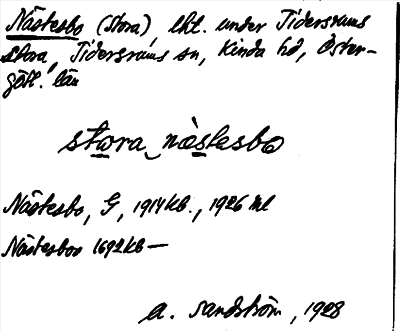 Nästesbo (Stora), lht. under Tidersrums
stora, Tidersrums sn, Kinda hd, Öster-
götl. län
stora nàstesbo
Nästesbo, G, 1914 kb., 1926 ml
Nästesboo 1692 kb —
A. Sandström, 1928